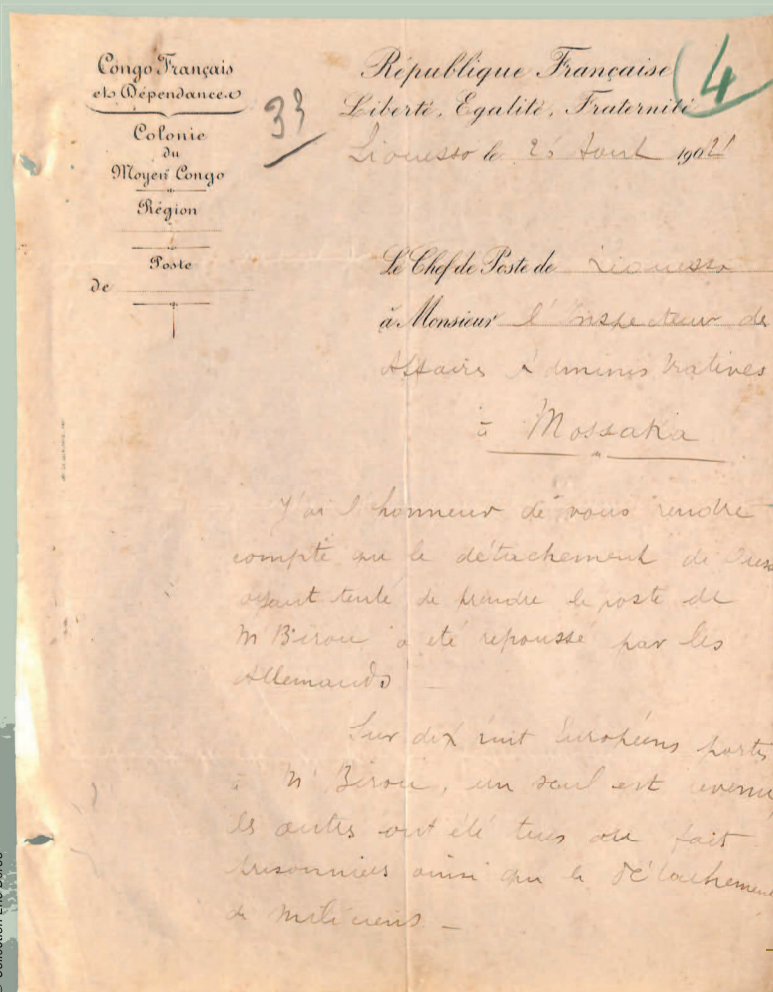 Congo Français
et Dépendances
Colonie
du
Moyen Congo
Région
Poste
de
33
République Française
4
Liberté, Egalité, Fraternité
Liouesso le 26 Aout 190
Le Chef de Poste de Liouesso
à Monsieur l'Inspecteur des
Affaires Administratives
à Mossaka
J'ai l'honneur de vous rendre
compte que le détachement de
ayant tenté de prendre le poste de
M'Birou a été repoussé par les
Allemands –
Sur dix huit Européens partis
à M'Birou, un seul est revenu,
les autres ont été tués ou fait
prisonniers ainsi que le détachement
de miliciens –